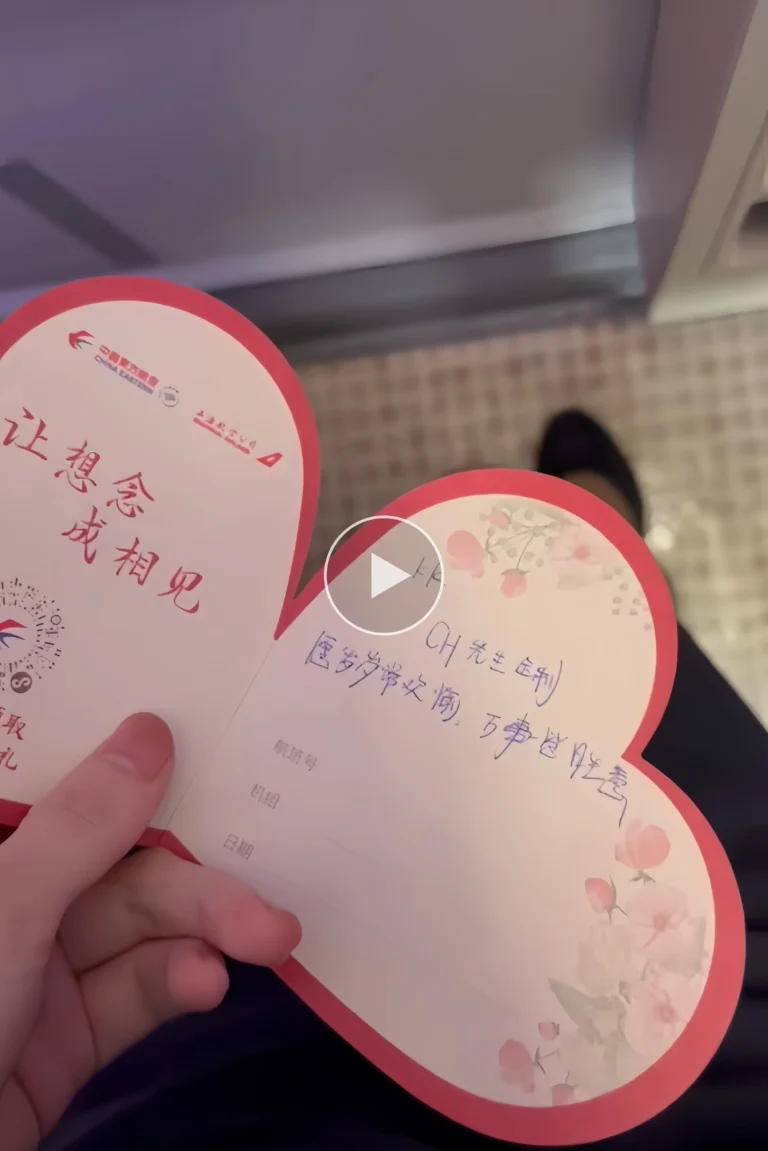 中国东方航空
CHINA EASTERN
上海航空公司
让想念
成相见
取
礼
CH 先生 定制
岁岁常欢愉，万事皆胜意
航班号
机组
日期